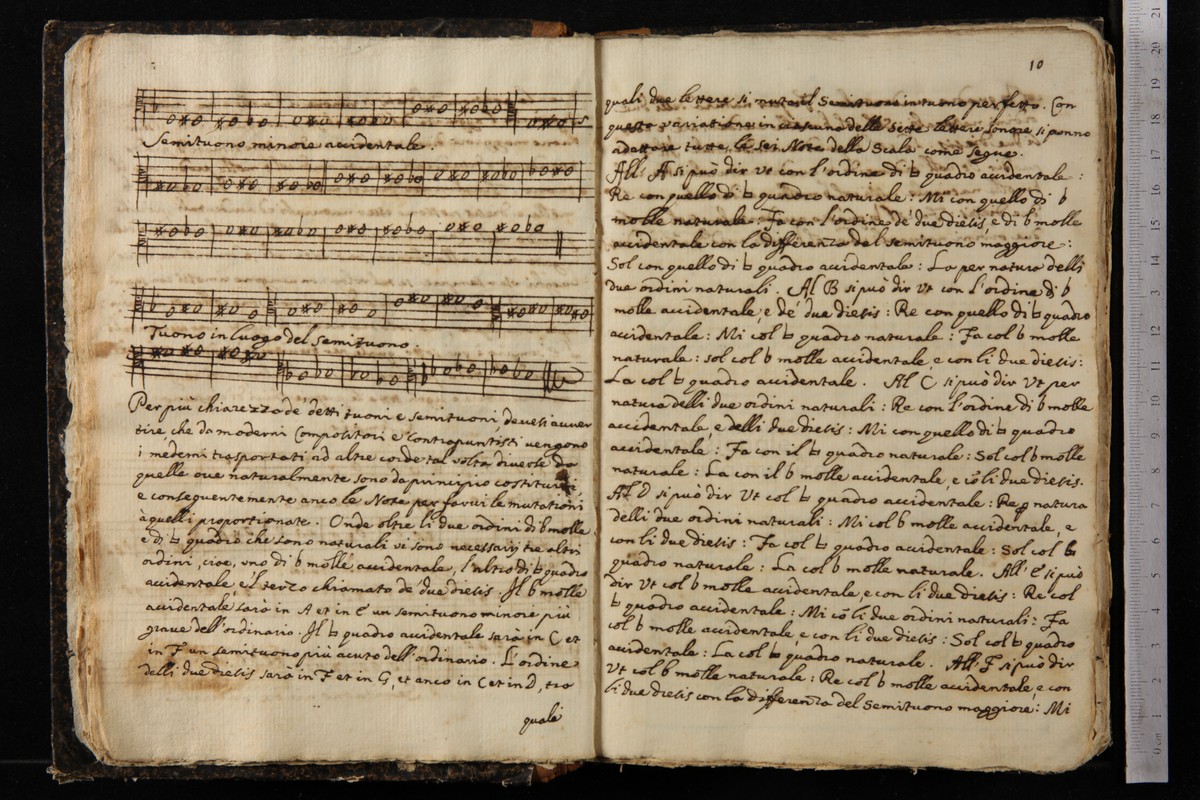 Semituono minore accidentale.
Tuono in luogo del Semituono.
Per più chiarezza de' detti tuoni e semituoni, devesi auuer
tire, che da moderni Compositori e Contrapuntisti uengono
i medemi trasportati ad altre corde tal uolta diuerse da
quelle oue naturalmente sono da principio costituiti,
e conseguentemente anco le Note per farui le mutationi
à quelli proportionate. Onde oltre li due ordini di b molle
e di ♮ quadro che sono naturali ui sono necessarij tre altri
ordini, cioe, uno di b molle accidentale, l'altro di ♮ quadro
accidentale e il terzo chiamato de' due diesis. Il b molle
accidentale sarà in A et in E un semituono minore più
graue dell'ordinario. Il ♮ quadro accidentale sarà in C et
in F un semituono più acuto dell'ordinario. L'ordine
delli due diesis sarà in F et in G, et anco in C et in D, tra
quali
10
quali due lettere si muta il Semituono in tuono perfetto. Con
questa uariatione in ciascuna delle sette lettere sonore si ponno
adattare tutte le sei Note della Scala come segue.
All' A si può dir Vt con l'ordine di ♮ quadro accidentale:
Re con quello di ♮ quadro naturale: Mi con quello di b
molle naturale: Fa con l'ordine de' due diesis, e di b molle
accidentale con la differenza del semituono maggiore:
Sol con quello di ♮ quadro accidentale: La per natura delli
due ordini naturali. Al B si può dir Vt con l'ordine di b
molle accidentale, e de' due diesis: Re con quello di ♮ quadro
accidentale: Mi col ♮ quadro naturale: Fa col b molle
naturale: sol col b molle accidentale, e con li due diesis:
La col ♮ quadro accidentale. Al C si può dir Vt per
natura delli due ordini naturali: Re con l'ordine di b molle
accidentale, e delli due diesis: Mi con quello di ♮ quadro
accidentale: Fa con il ♮ quadro naturale: Sol col b molle
naturale: La con il b molle accidentale, e cõ li due diesis.
Al D si può dir Vt col ♮ quadro accidentale: Re p natura
delli due ordini naturali: Mi col b molle accidentale, e
con li due diesis: Fa col ♮ quadro accidentale: Sol col ♮
quadro naturale: La col b molle naturale. All' E si può
dir Vt col b molle accidentale, e con li due diesis: Re col
♮ quadro accidentale: Mi cõ li due ordini naturali: Fa
col b molle accidentale e con li due diesis: Sol col ♮ quadro
accidentale: La col ♮ quadro naturale. All' F si può dir
Vt col b molle naturale: Re col b molle accidentale, e con
li due diesis con la differenza del Semituono maggiore: Mi